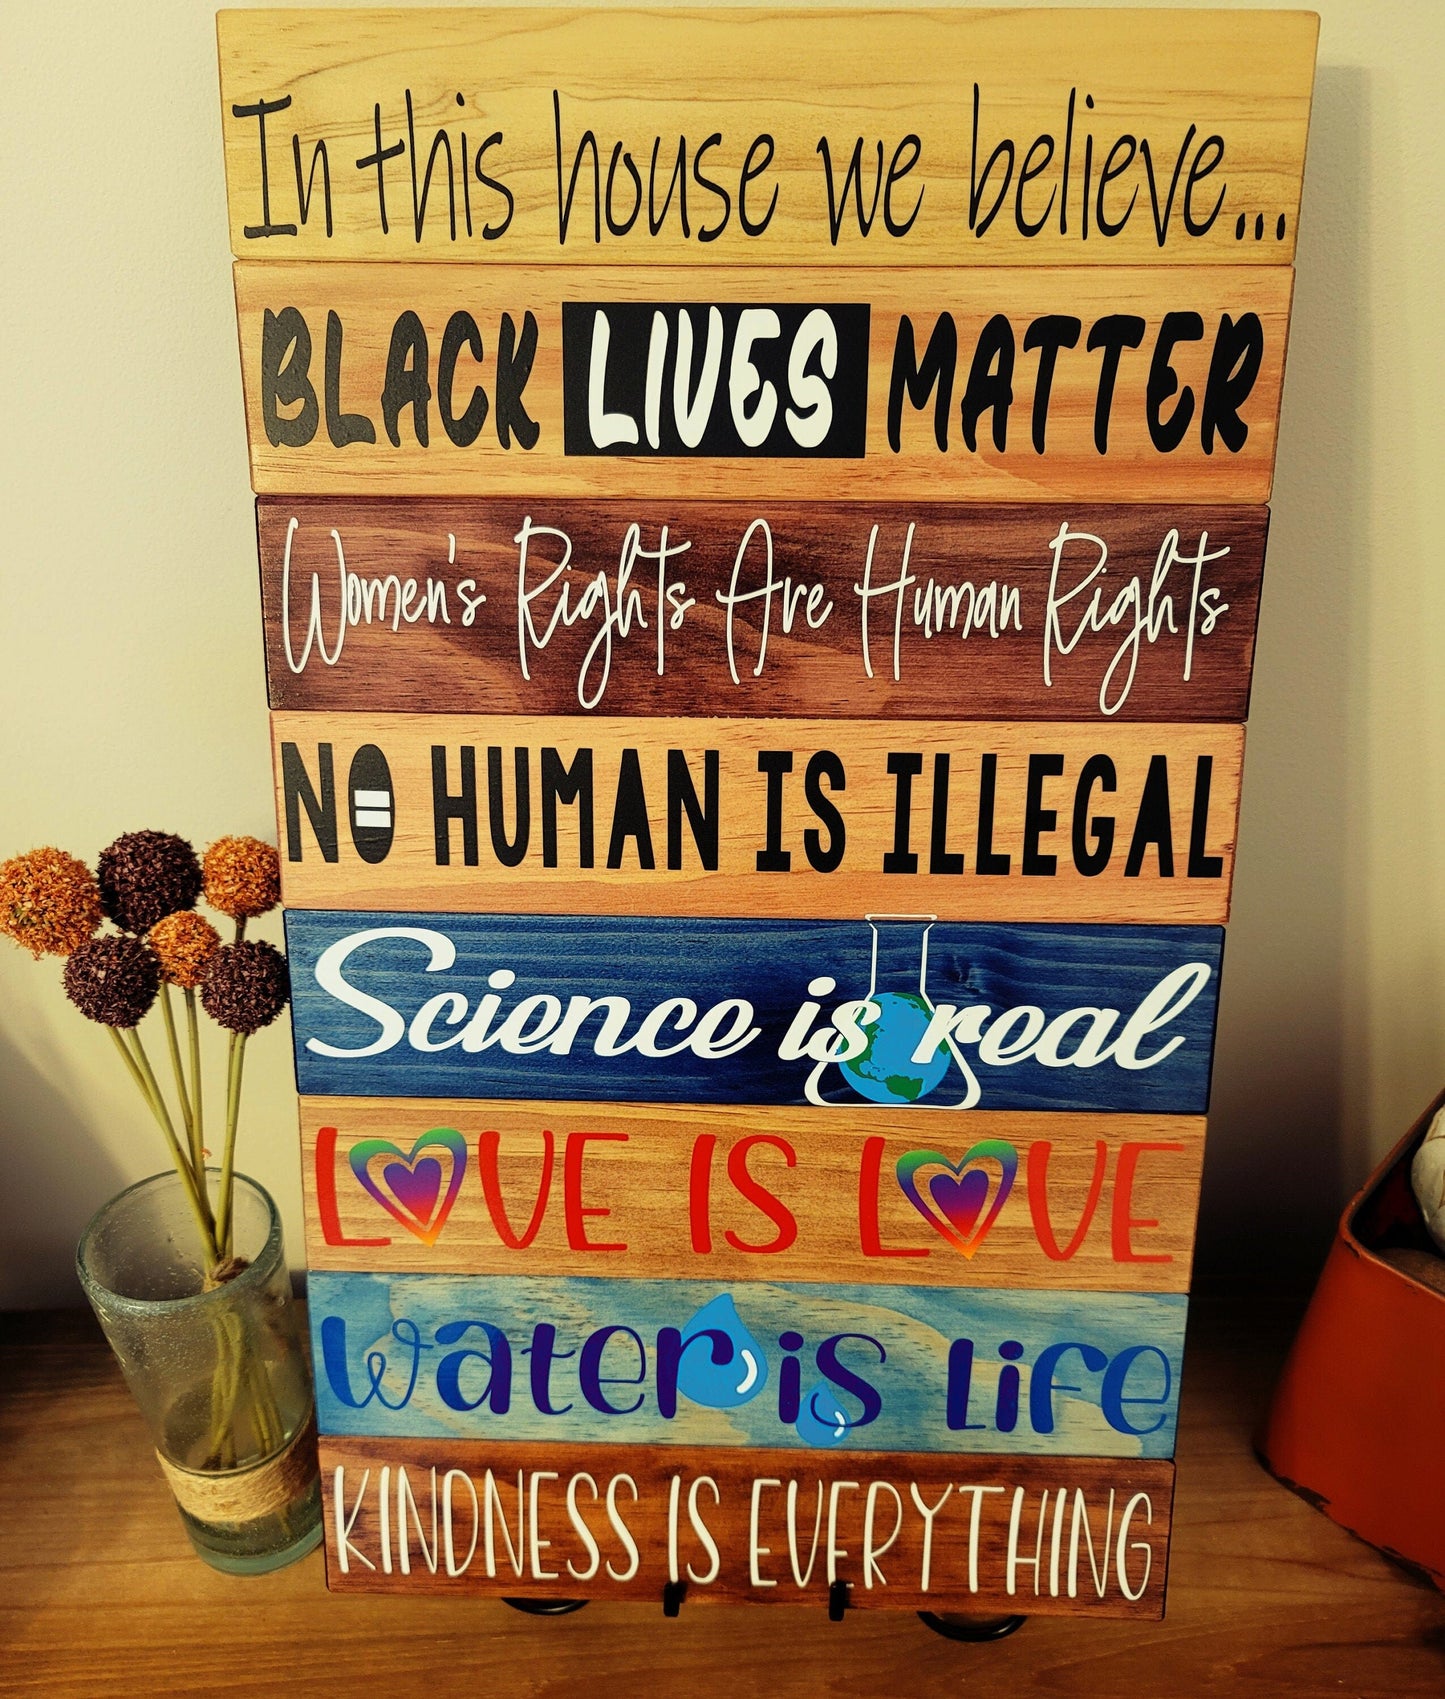 In this house we believe...
BLACK LIVES MATTER
Women's Rights Are Human Rights
NO HUMAN IS ILLEGAL
Science is real
LOVE IS LOVE
Water is Life
KINDNESS IS EVERYTHING